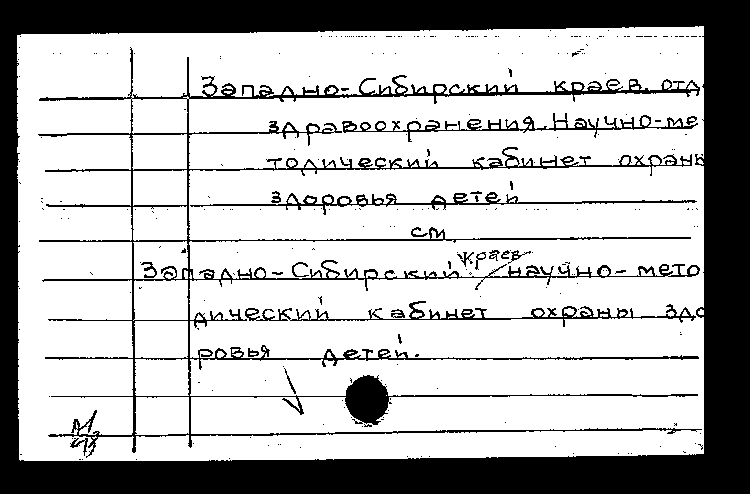 Западно-Сибирский краев. отд.
здравоохранения. Научно-ме
тодический кабинет охраны
здоровья детей
см.
Западно-Сибирский краев. научно-мето
дический кабинет охраны здо
ровья детей.